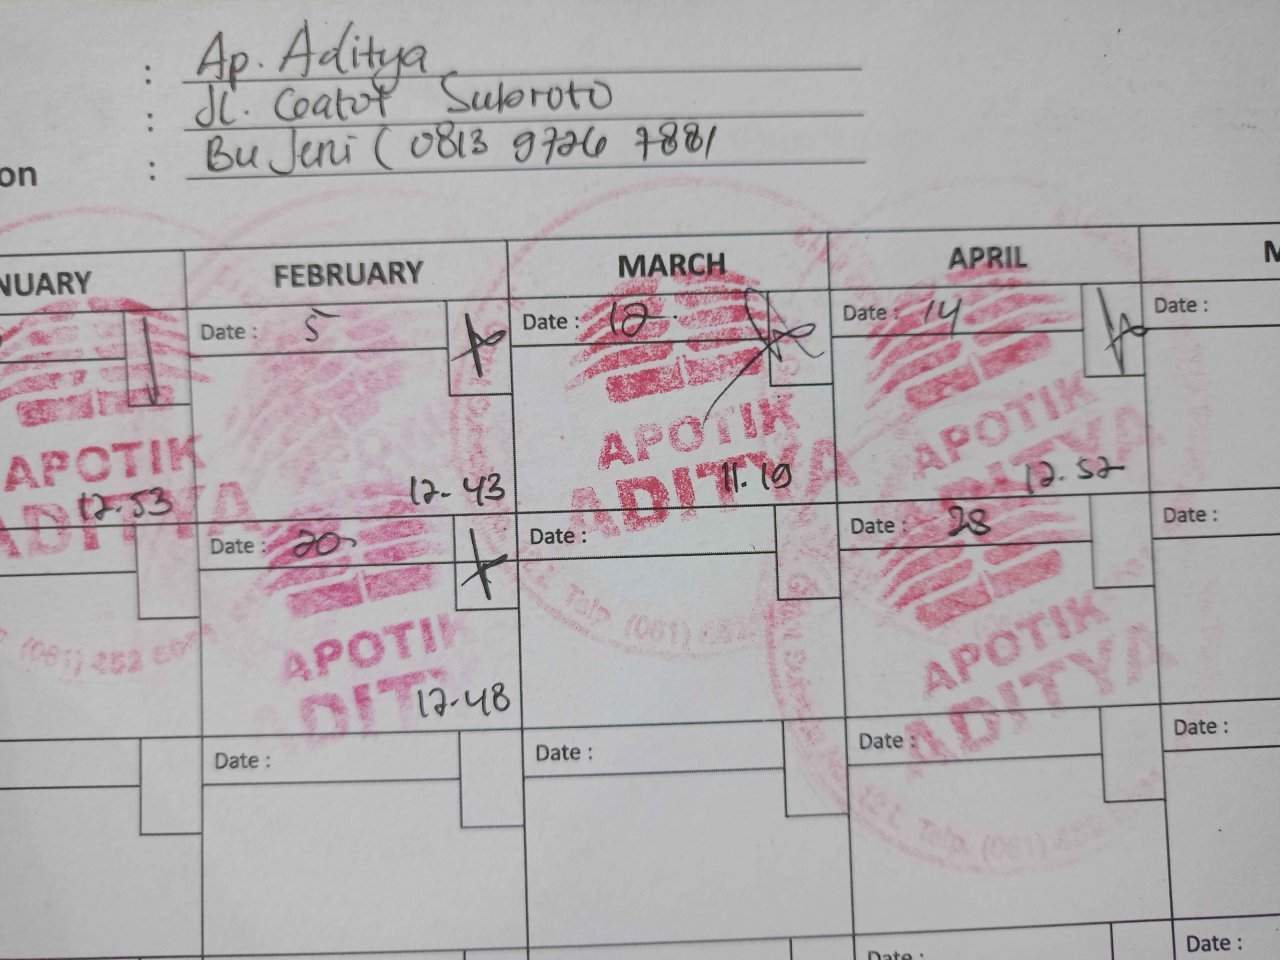 : Ap. Aditya
: Jl. Gatot Subroto
on : Bu Jeni ( 0813 9726 7881
NUARY FEBRUARY MARCH APRIL M
Date : 5 Date : 12 Date : 14 Date :
APOTIK ADITYA APOTIK ADITYA APOTIK ADITYA
12.53 12-43 11.19 12.52
Date : 20 Date : Date : 28 Date :
APOTIK ADITYA APOTIK ADITYA
(061) 452 Telp. (061) 452
12.48
Date : Date : Date : Date :
Telp. (061) 452
Date : Date :